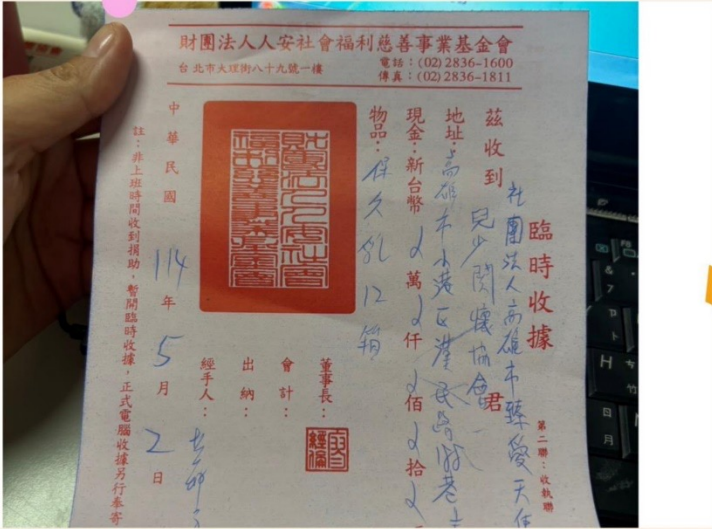 財團法人人安社會福利慈善事業基金會
台北市大理街八十九號一樓
電話：(02)2836-1600
傳真：(02)2836-1811
臨時收據
第二聯：收執聯
茲收到 社團法人高雄市臻愛天使
兒少關懷協會 君
地址：高雄市小港區漢民路
現金：新台幣 萬 仟 佰 拾
物品：保久乳12箱
董事長：
會計：
出納：
經手人：
中華民國 114 年 5 月 2 日
註：非上班時間收到捐助，暫開臨時收據，正式電腦收據另行奉寄